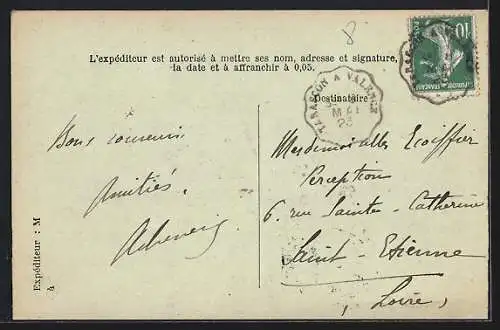 8
L'expéditeur est autorisé à mettre ses nom, adresse et signature,
la date et à affranchir à 0,05.
10
TARASCON A VALENCE
MAI
23
Destinataire
Bons souvenirs
Amitiés.
Mesdemoiselles Ecoiffier
Perception
6, rue Sainte-Catherine
Saint-Etienne
(Loire)
Expéditeur : M
4